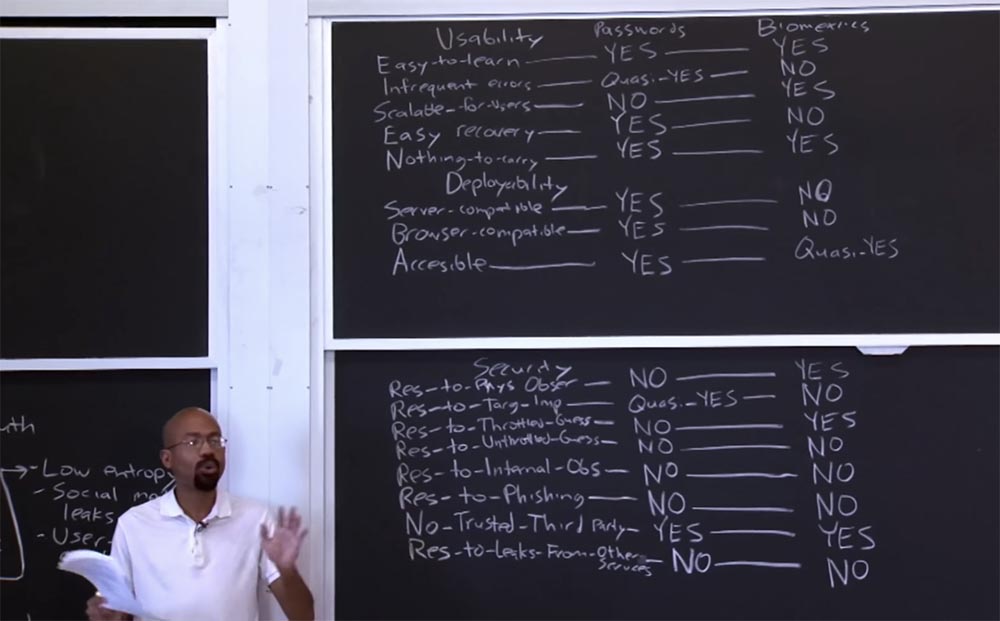 Usability Passwords Biometrics
Easy-to-learn YES YES
Infrequent errors Quasi-YES NO
Scalable-for-users NO YES
Easy recovery YES NO
Nothing-to-carry YES YES
Deployability
Server-compatible YES NO
Browser-compatible YES NO
Accesible YES Quasi-YES
Security
Res-to-Phys Obser NO YES
Res-to-Targ-Imp Quasi-YES NO
Res-to-Throttled-Guess NO YES
Res-to-Unthrottled-Guess NO NO
Res-to-Internal-Obs NO NO
Res-to-Phishing NO NO
No-Trusted-Third Party YES YES
Res-to-Leaks-From-Other Services NO NO
uth
→-Low entropy
-Social
leaks
-User-